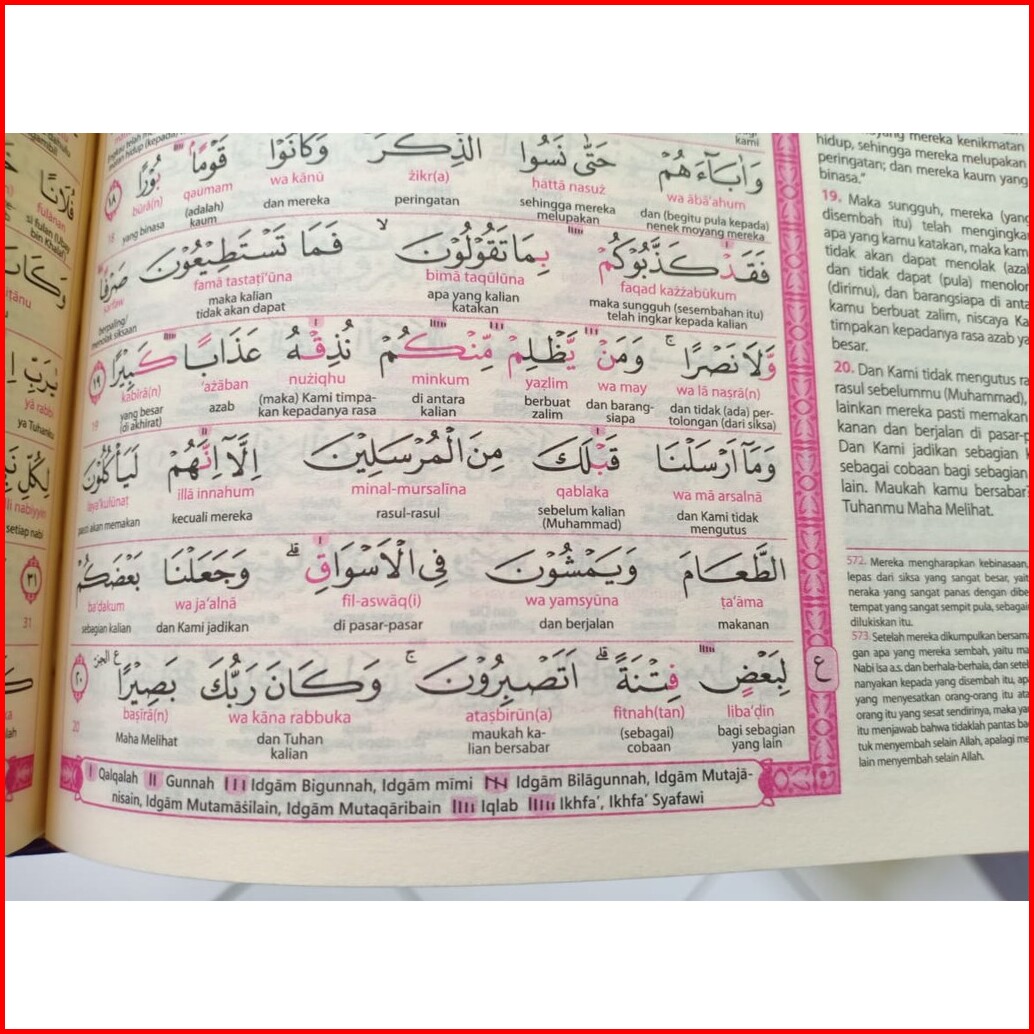 kami
وَاٰبَاۤءَهُمْ حَتّٰى نَسُوا الذِّكْرَۚ وَكَانُوْا قَوْمًاۢ بُوْرًا ١٨
wa ābā'ahum ḥattā nasuż żikr(a) wa kānū qaumam būrā(n)
dan (begitu pula kepada) nenek moyang mereka sehingga mereka melupakan peringatan dan mereka (adalah) kaum yang binasa
فَقَدْ كَذَّبُوْكُمْ بِمَا تَقُوْلُوْنَۙ فَمَا تَسْتَطِيْعُوْنَ صَرْفًا
faqad każżabūkum bimā taqūlūna famā tastaṭī'ūna ṣarfaw
maka sungguh (sesembahan itu) telah ingkar kepada kalian apa yang kalian katakan maka kalian tidak akan dapat berpaling/ menolak siksaan
وَّلَا نَصْرًاۚ وَمَنْ يَّظْلِمْ مِّنْكُمْ نُذِقْهُ عَذَابًا كَبِيْرًا ١٩
wa lā naṣrā(n) wa may yaẓlim minkum nużiqhu 'ażāban kabīrā(n)
dan tidak (ada) pertolongan (dari siksa) dan barang-siapa berbuat zalim di antara kalian (maka) Kami timpa-kan kepadanya rasa azab yang besar (di akhirat) 19
وَمَآ اَرْسَلْنَا قَبْلَكَ مِنَ الْمُرْسَلِيْنَ اِلَّآ اِنَّهُمْ لَيَأْكُلُوْنَ
wa mā arsalnā qablaka minal-mursalīna illā innahum laya'kulūnaṭ
dan Kami tidak mengutus sebelum kalian (Muhammad) rasul-rasul kecuali mereka pasti akan memakan
الطَّعَامَ وَيَمْشُوْنَ فِى الْاَسْوَاقِۗ وَجَعَلْنَا بَعْضَكُمْ
ṭa'āma wa yamsyūna fil-aswāq(i) wa ja'alnā ba'ḍakum
makanan dan berjalan di pasar-pasar dan Kami jadikan sebagian kalian
لِبَعْضٍ فِتْنَةًۗ اَتَصْبِرُوْنَۚ وَكَانَ رَبُّكَ بَصِيْرًا ࣖ ٢٠
liba'ḍin fitnah(tan) ataṣbirūn(a) wa kāna rabbuka baṣīrā(n)
bagi sebagian yang lain (sebagai) cobaan maukah ka-lian bersabar dan Tuhan kalian Maha Melihat 20
ع
Qalqalah Gunnah Idgām Bigunnah, Idgām mīmi Idgām Bilāgunnah, Idgām Mutajā-
nisain, Idgām Mutamāśilain, Idgām Mutaqāribain Iqlab Ikhfa', Ikhfa' Syafawi
mereka kenikmatan
hidup, sehingga mereka melupakan
peringatan; dan mereka kaum yang
binasa."
19. Maka sungguh, mereka (yang
disembah itu) telah mengingkar
apa yang kamu katakan, maka kam
tidak akan dapat menolak (aza
dan tidak (pula) menolon
(dirimu), dan barangsiapa di anta
kamu berbuat zalim, niscaya Ka
timpakan kepadanya rasa azab ya
besar.
20. Dan Kami tidak mengutus ra
rasul sebelummu (Muhammad),
lainkan mereka pasti memakan
kanan dan berjalan di pasar-p
Dan Kami jadikan sebagian
sebagai cobaan bagi sebagian
lain. Maukah kamu bersabar?
Tuhanmu Maha Melihat.
572. Mereka mengharapkan kebinasaan,
lepas dari siksa yang sangat besar, yait
neraka yang sangat panas dengan dibe
tempat yang sangat sempit pula, sebagai
dilukiskan itu.
573. Setelah mereka dikumpulkan bersam
gan apa yang mereka sembah, yaitu ma
Nabi Isa a.s. dan berhala-berhala, dan setel
nanyakan kepada yang disembah itu, ap
yang menyesatkan orang-orang itu ata
orang itu yang sesat sendirinya, maka ya
itu menjawab bahwa tidaklah pantas ba
tuk menyembah selain Allah, apalagi me
lain menyembah selain Allah.
فُلَانًا
fulānan
si fulan (Ubay
bin Khalaf)
yā rabbi
ya Tuhanku
لِكُلِّ
setiap nabi
٣١
31